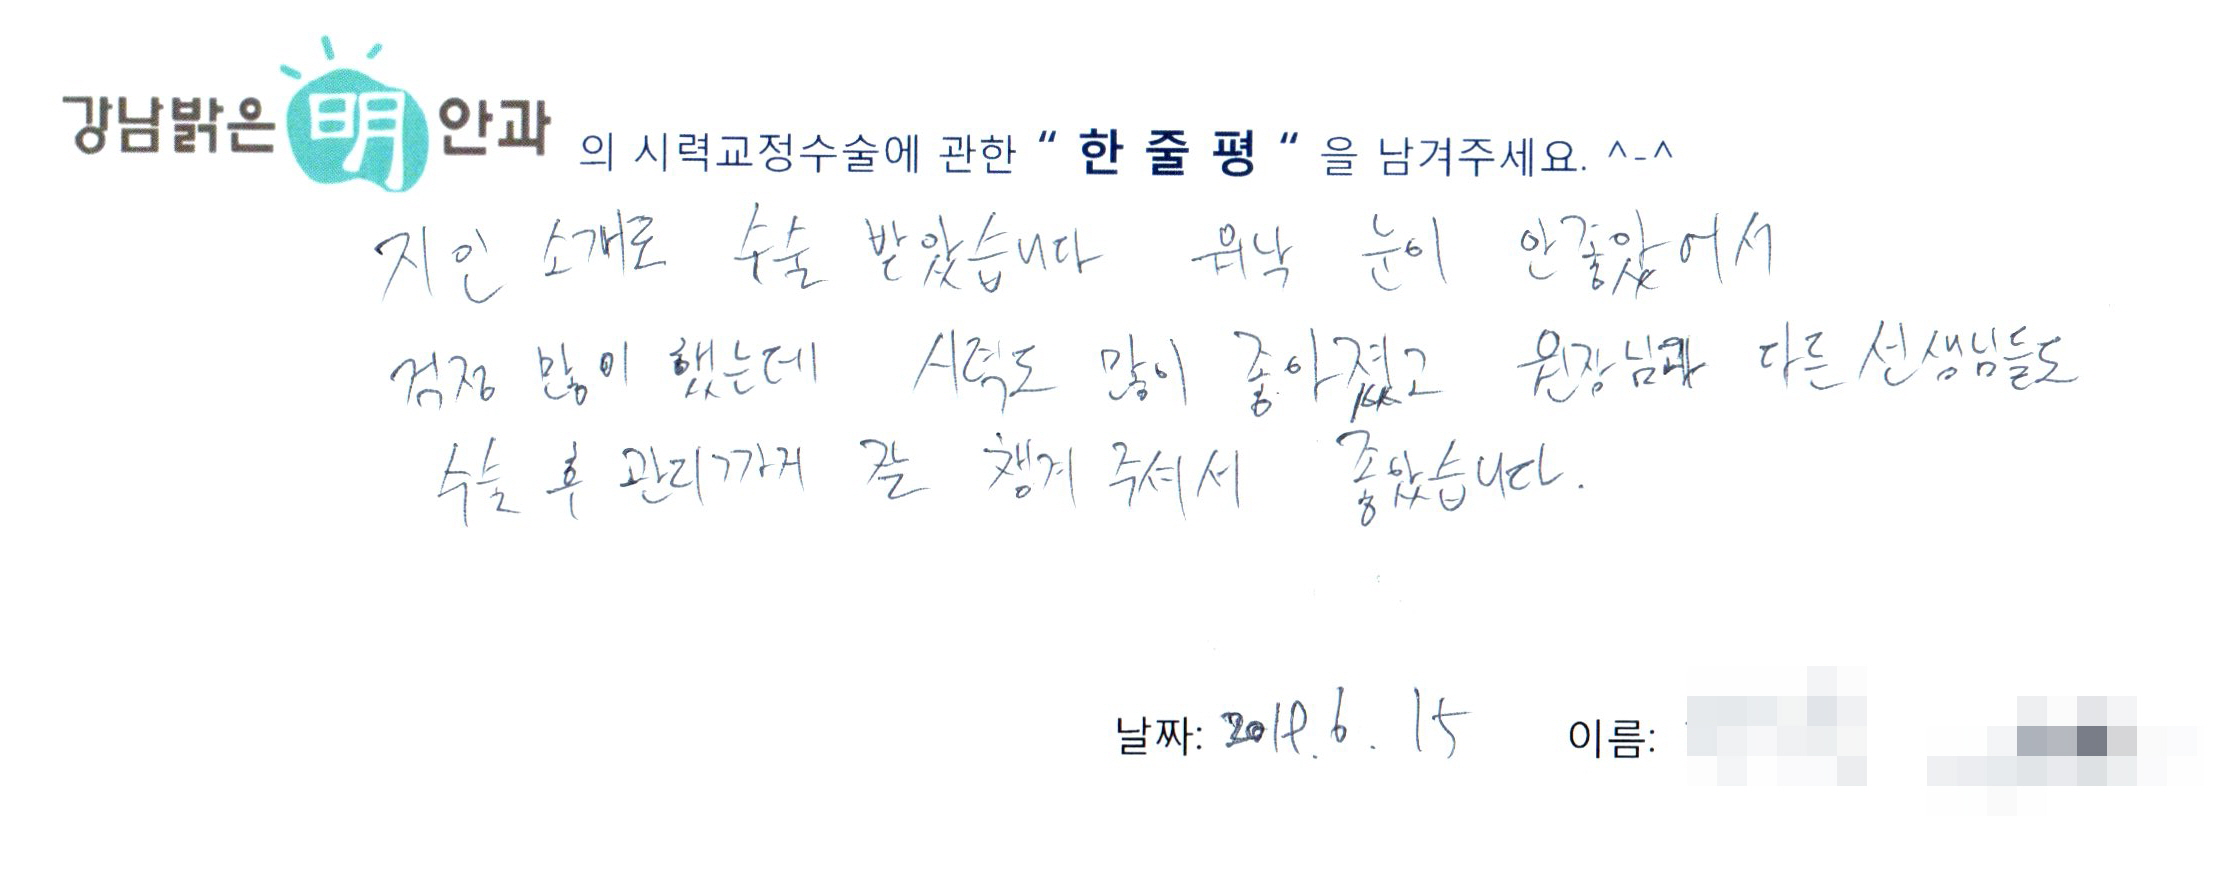 강남밝은明안과 의 시력교정수술에 관한 “ 한 줄 평 “ 을 남겨주세요. ^-^
지인 소개로 수술 받았습니다 워낙 눈이 안좋았어서
걱정 많이 했는데 시력도 많이 좋아졌고 원장님과 다른 선생님들도
수술 후 관리까지 잘 챙겨 주셔서 좋았습니다.
날짜: 2019. 6. 15 이름: